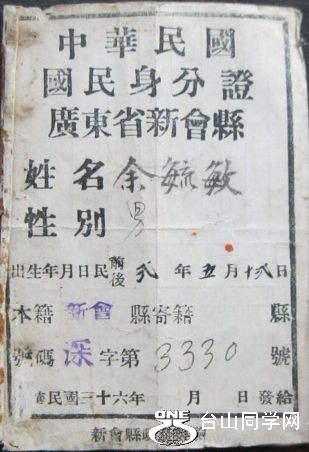 中華民國
國民身分證
廣東省新會縣
姓名余毓敏
性別男
出生年月日民前後貳年五月十八日
本籍新會縣寄籍 縣
號碼深字第3330號
民國三十六年 月 日發給
新會縣
ONE 台山同学网